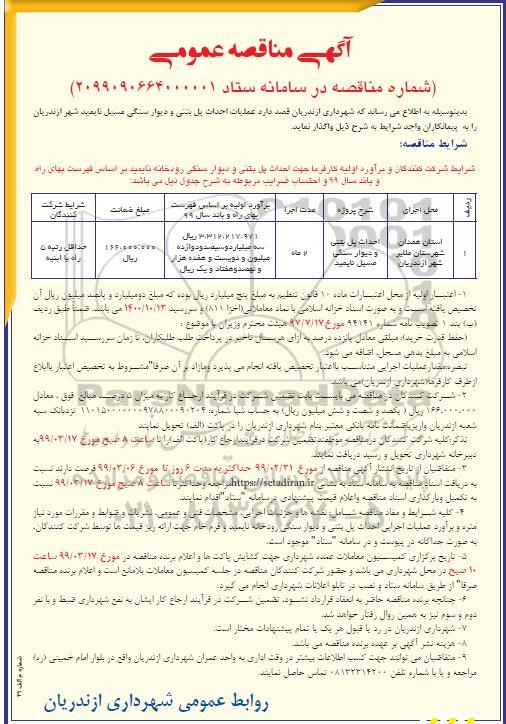 آگهی مناقصه عمومی
(شماره مناقصه در سامانه ستاد ۲۰۹۹۰۹۰۶۶۴۰۰۰۰۰۱)
بدینوسیله به اطلاع می رساند که شهرداری ازندریان قصد دارد عملیات احداث پل بتنی و دیوار سنگی مسیل نایمید شهر ازندریان
را به پیمانکاران واجد شرایط به شرح ذیل واگذار نماید.
شرایط مناقصه:
شرایط شرکت کنندگان و برآورد اولیه کارفرما جهت احداث پل بتنی و دیوار سنگی رودخانه نایمید بر اساس فهرست بهای راه
و باند سال ۹۹ و احتساب ضرایب مربوطه به شرح جدول ذیل می باشد:
ردیف محل اجرای شرح پروژه مدت اجرا برآورد اولیه بر اساس فهرست بهای راه و باند سال ۹۹ مبلغ ضمانت شرایط شرکت کنندگان
۱ استان همدان شهرستان ملایر شهر ازندریان احداث پل بتنی و دیوار سنگی مسیل نایمید ۲ ماه ۳،۳۱۲،۲۱۷،۹۷۱ ریال سه میلیاردوسیصدودوازده میلیون و دویست و هفده هزار و نهصدوهفتاد و یک ریال ۱۶۶،۰۰۰،۰۰۰ ریال حداقل رتبه ۵ راه یا ابنیه
۱- اعتبار اولیه از محل اعتبارات ماده ۱۰ قانون تنظیم به مبلغ پنج میلیارد ریال بوده که مبلغ دومیلیارد و پانصد میلیون ریال آن
تخصیص یافته است و به صورت اسناد خزانه اسلامی با نماد معاملاتی (اخزا ۸۱۱) و سررسید ۱۴۰۰/۱۰/۱۳ می باشد. ضمناً طبق ردیف
(ب) بند ۱ تصویب نامه شماره ۹۴۱۴۱ مورخ ۹۷/۷/۱۷ هیئت محترم وزیران با موضوع :
(حفظ قدرت خرید)؛ مبلغی معادل پانزده درصد به ازای هرسال تاخیر در پرداخت طلب طلبکاران، تا زمان سررسید اسناد خزانه
اسلامی به مبلغ بدهی مسجل، اضافه می شود.
تبصره:مقدارعملیات اجرایی متناسب بااعتبار تخصیص یافته انجام می پذیرد ومازاد بر آن صرفا"مشروط به تخصیص اعتبار باابلاغ
ازطرف کارفرما(شهرداری ازندریان)می باشد.
۲- شرکت کنندگان در مناقصه می بایست بابت تضمین شرکت در فرآیند ارجاع کار به میزان ۵ درصد مبالغ فوق ، معادل
۱۶۶،۰۰۰،۰۰۰ ریال ( یکصد و شصت و شش میلیون ریال) به حساب شبا شماره: نزدبانک سپه
شعبه ازندریان واریزیاضمانت نامه بانکی معتبر بنام شهرداری ازندریان را در پاکت (الف) تحویل نمایند
تذکر:کلیه شرکت کنندگان درمناقصه موظفند تضمین شرکت درفرآیندارجاع کار(پاکت الف)را تا ساعت ۸ صبح مورخ ۹۹/۰۳/۱۷به
دبیرخانه شهرداری تحویل و رسید دریافت نمایند.
۳- متقاضیان از تاریخ انتشار آگهی مناقصه از مورخ ۹۹/۰۲/۳۱ حداکثر به مدت ۶ روز تا مورخ ۹۹/۰۳/۰۶ فرصت دارند نسبت
به دریافت اسناد مناقصه به سامانه ستاد به نشانی https://setadiran.irمراجعه وحداکثر تا ساعت ۸ صبح مورخ ۹۹/۰۳/۱۷ نسبت
به تکمیل وبارگذاری اسناد مناقصه واعلام قیمت پیشنهادی درسامانه "ستاد"اقدام نمایند.
۴- کلیه شرایط و مفاد مناقصه شامل، نقشه ها و جزئیات اجرایی، مشخصات فنی و عمومی، نشریات و ضوابط و مقررات مورد نیاز
متره و برآورد عملیات اجرایی احداث پل بتنی و دیوار سنگی رودخانه نایمید و فرم خام جهت ارائه ریز قیمت ها توسط شرکت کنندگان،
به صورت جداگانه در پیوست و در سامانه "ستاد" موجود است.
۵- تاریخ برگزاری کمیسیون معاملات عمده شهرداری جهت گشایش پاکت ها و اعلام برنده مناقصه در مورخ ۹۹/۰۳/۱۷ ساعت
۱۰ صبح در محل شهرداری می باشد و حضور شرکت کنندگان مناقصه در جلسه کمیسیون معاملات بلامانع است و اعلام برنده مناقصه
صرفا" از طریق سامانه ستاد و نصب در تابلو اعلانات شهرداری انجام می گیرد.
۶- چنانچه برنده مناقصه حاضر به انعقاد قرارداد نشود، تضمین شرکت در فرآیند ارجاع کار ایشان به نفع شهرداری ضبط و با نفر
دوم و سوم نیز به همین روال رفتار خواهد شد.
۷- شهرداری ازندریان در رد یا قبول هر یک یا تمام پیشنهادات مختار است.
۸- هزینه نشر آگهی بر عهده برنده مناقصه می باشد.
۹- متقاضیان می توانند جهت کسب اطلاعات بیشتر در وقت اداری به واحد عمران شهرداری ازندریان واقع در بلوار امام خمینی (ره)
مراجعه و یا با شماره تلفن ۰۸۱۳۲۳۱۴۲۰۰ تماس حاصل نمایند.
روابط عمومی شهرداری ازندریان
شماره م.الف ۴۹